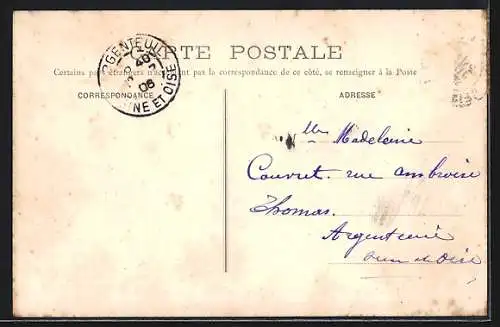 CARTE POSTALE
Certains pays étrangers n'acceptent pas la correspondance de ce côté, se renseigner à la Poste
CORRESPONDANCE
ADRESSE
ARGENTEUIL
SEINE ET OISE
Mlle Madeleine
Couvret. rue ambroise
Thomas.
Argenteuil
Seine et Oise